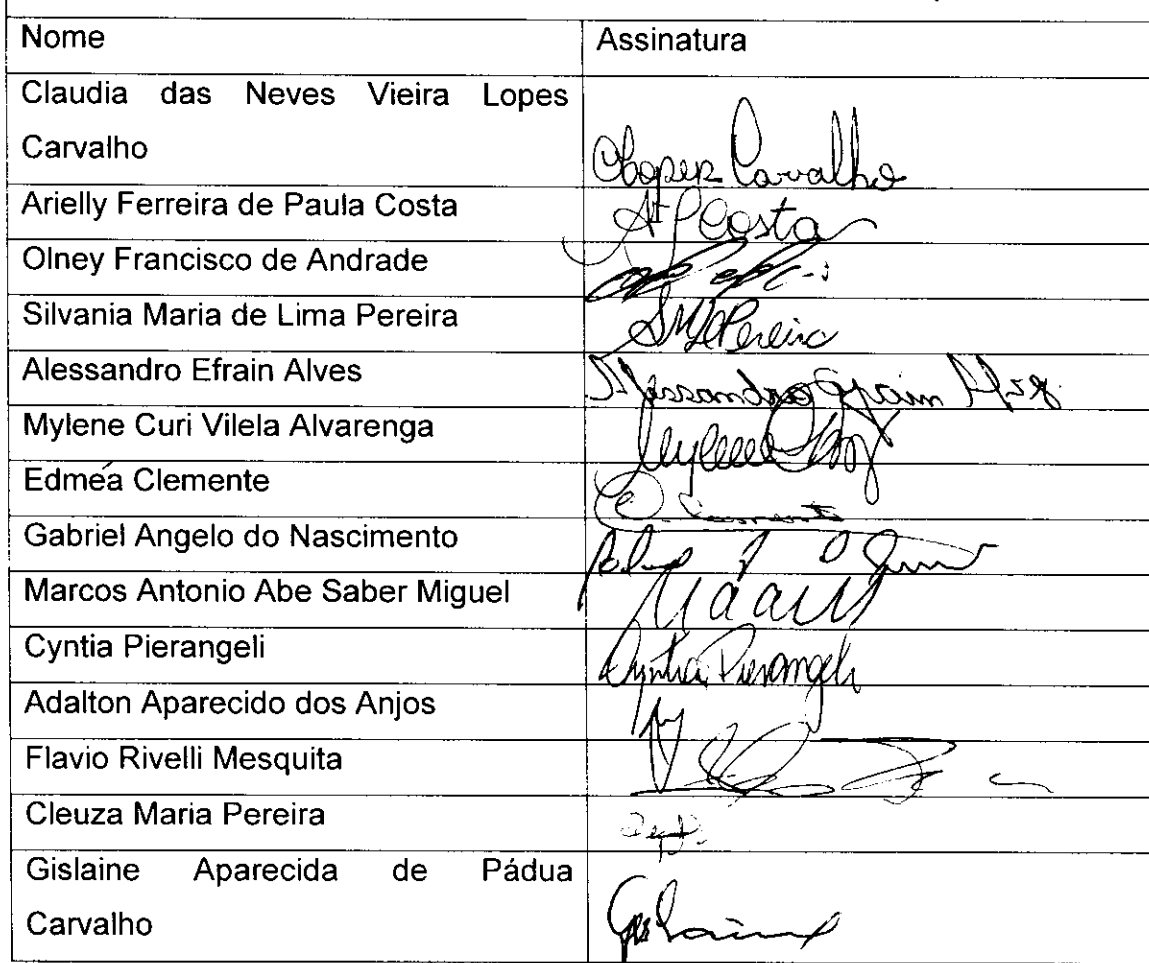 Nome Assinatura
Claudia das Neves Vieira Lopes
Carvalho CLopes Carvalho
Arielly Ferreira de Paula Costa AFPCosta
Olney Francisco de Andrade
Silvania Maria de Lima Pereira SMLPereira
Alessandro Efrain Alves Alessandro Efrain
Mylene Curi Vilela Alvarenga Mylene
Edmeá Clemente Clemente
Gabriel Angelo do Nascimento
Marcos Antonio Abe Saber Miguel
Cyntia Pierangeli Cyntia Pierangeli
Adalton Aparecido dos Anjos
Flavio Rivelli Mesquita
Cleuza Maria Pereira
Gislaine Aparecida de Pádua
Carvalho Gislaine